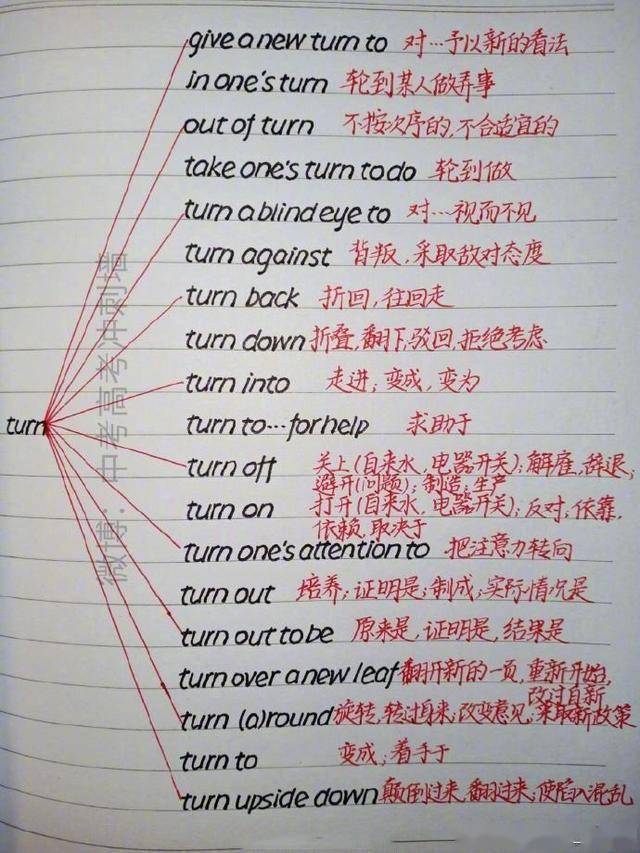 give a new turn to 对…予以新的看法
in one's turn 轮到某人做弄事
out of turn 不按次序的,不合适宜的
take one's turn to do 轮到做
turn a blind eye to 对…视而不见
turn against 背叛,采取敌对态度
turn back 折回,往回走
turn down 折叠,翻下,驳回,拒绝考虑
turn into 走进;变成,变为
turn
turn to…for help 求助于
turn off 关上(自来水,电器开关);解雇,辞退,
避开(问题);制造;生产
turn on 打开(自来水,电器开关);反对;依靠,
依赖,取决于
turn one's attention to 把注意力转向
turn out 培养;证明是;制成;实际情况是
turn out to be 原来是,证明是,结果是
turn over a new leaf 翻开新的一页,重新开始,
改过自新
turn (a)round 旋转,转过身来,改变意见,采取新政策
turn to 变成;着手于
turn upside down 颠倒过来,翻过来;使陷入混乱
微博:中考高考冲刺墙